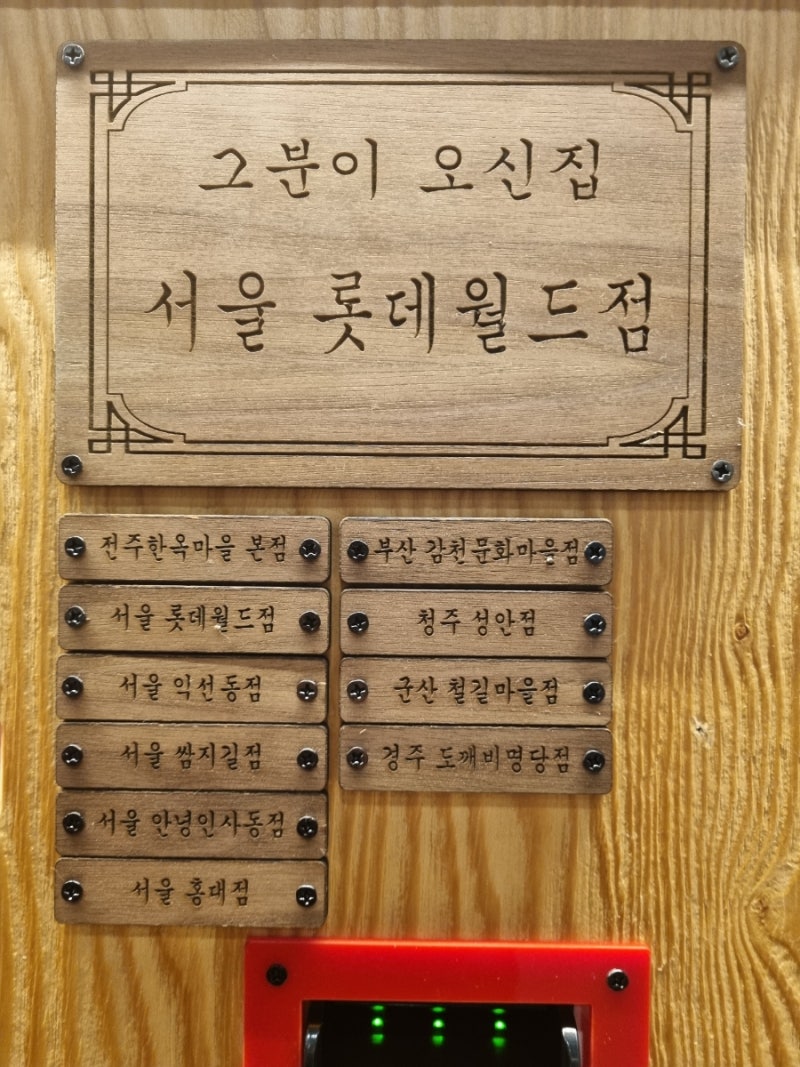 그분이 오신집
서울 롯데월드점
전주한옥마을 본점
서울 롯데월드점
서울 익선동점
서울 쌈지길점
서울 안녕인사동점
서울 홍대점
부산 감천문화마을점
청주 성안점
군산 철길마을점
경주 도깨비명당점